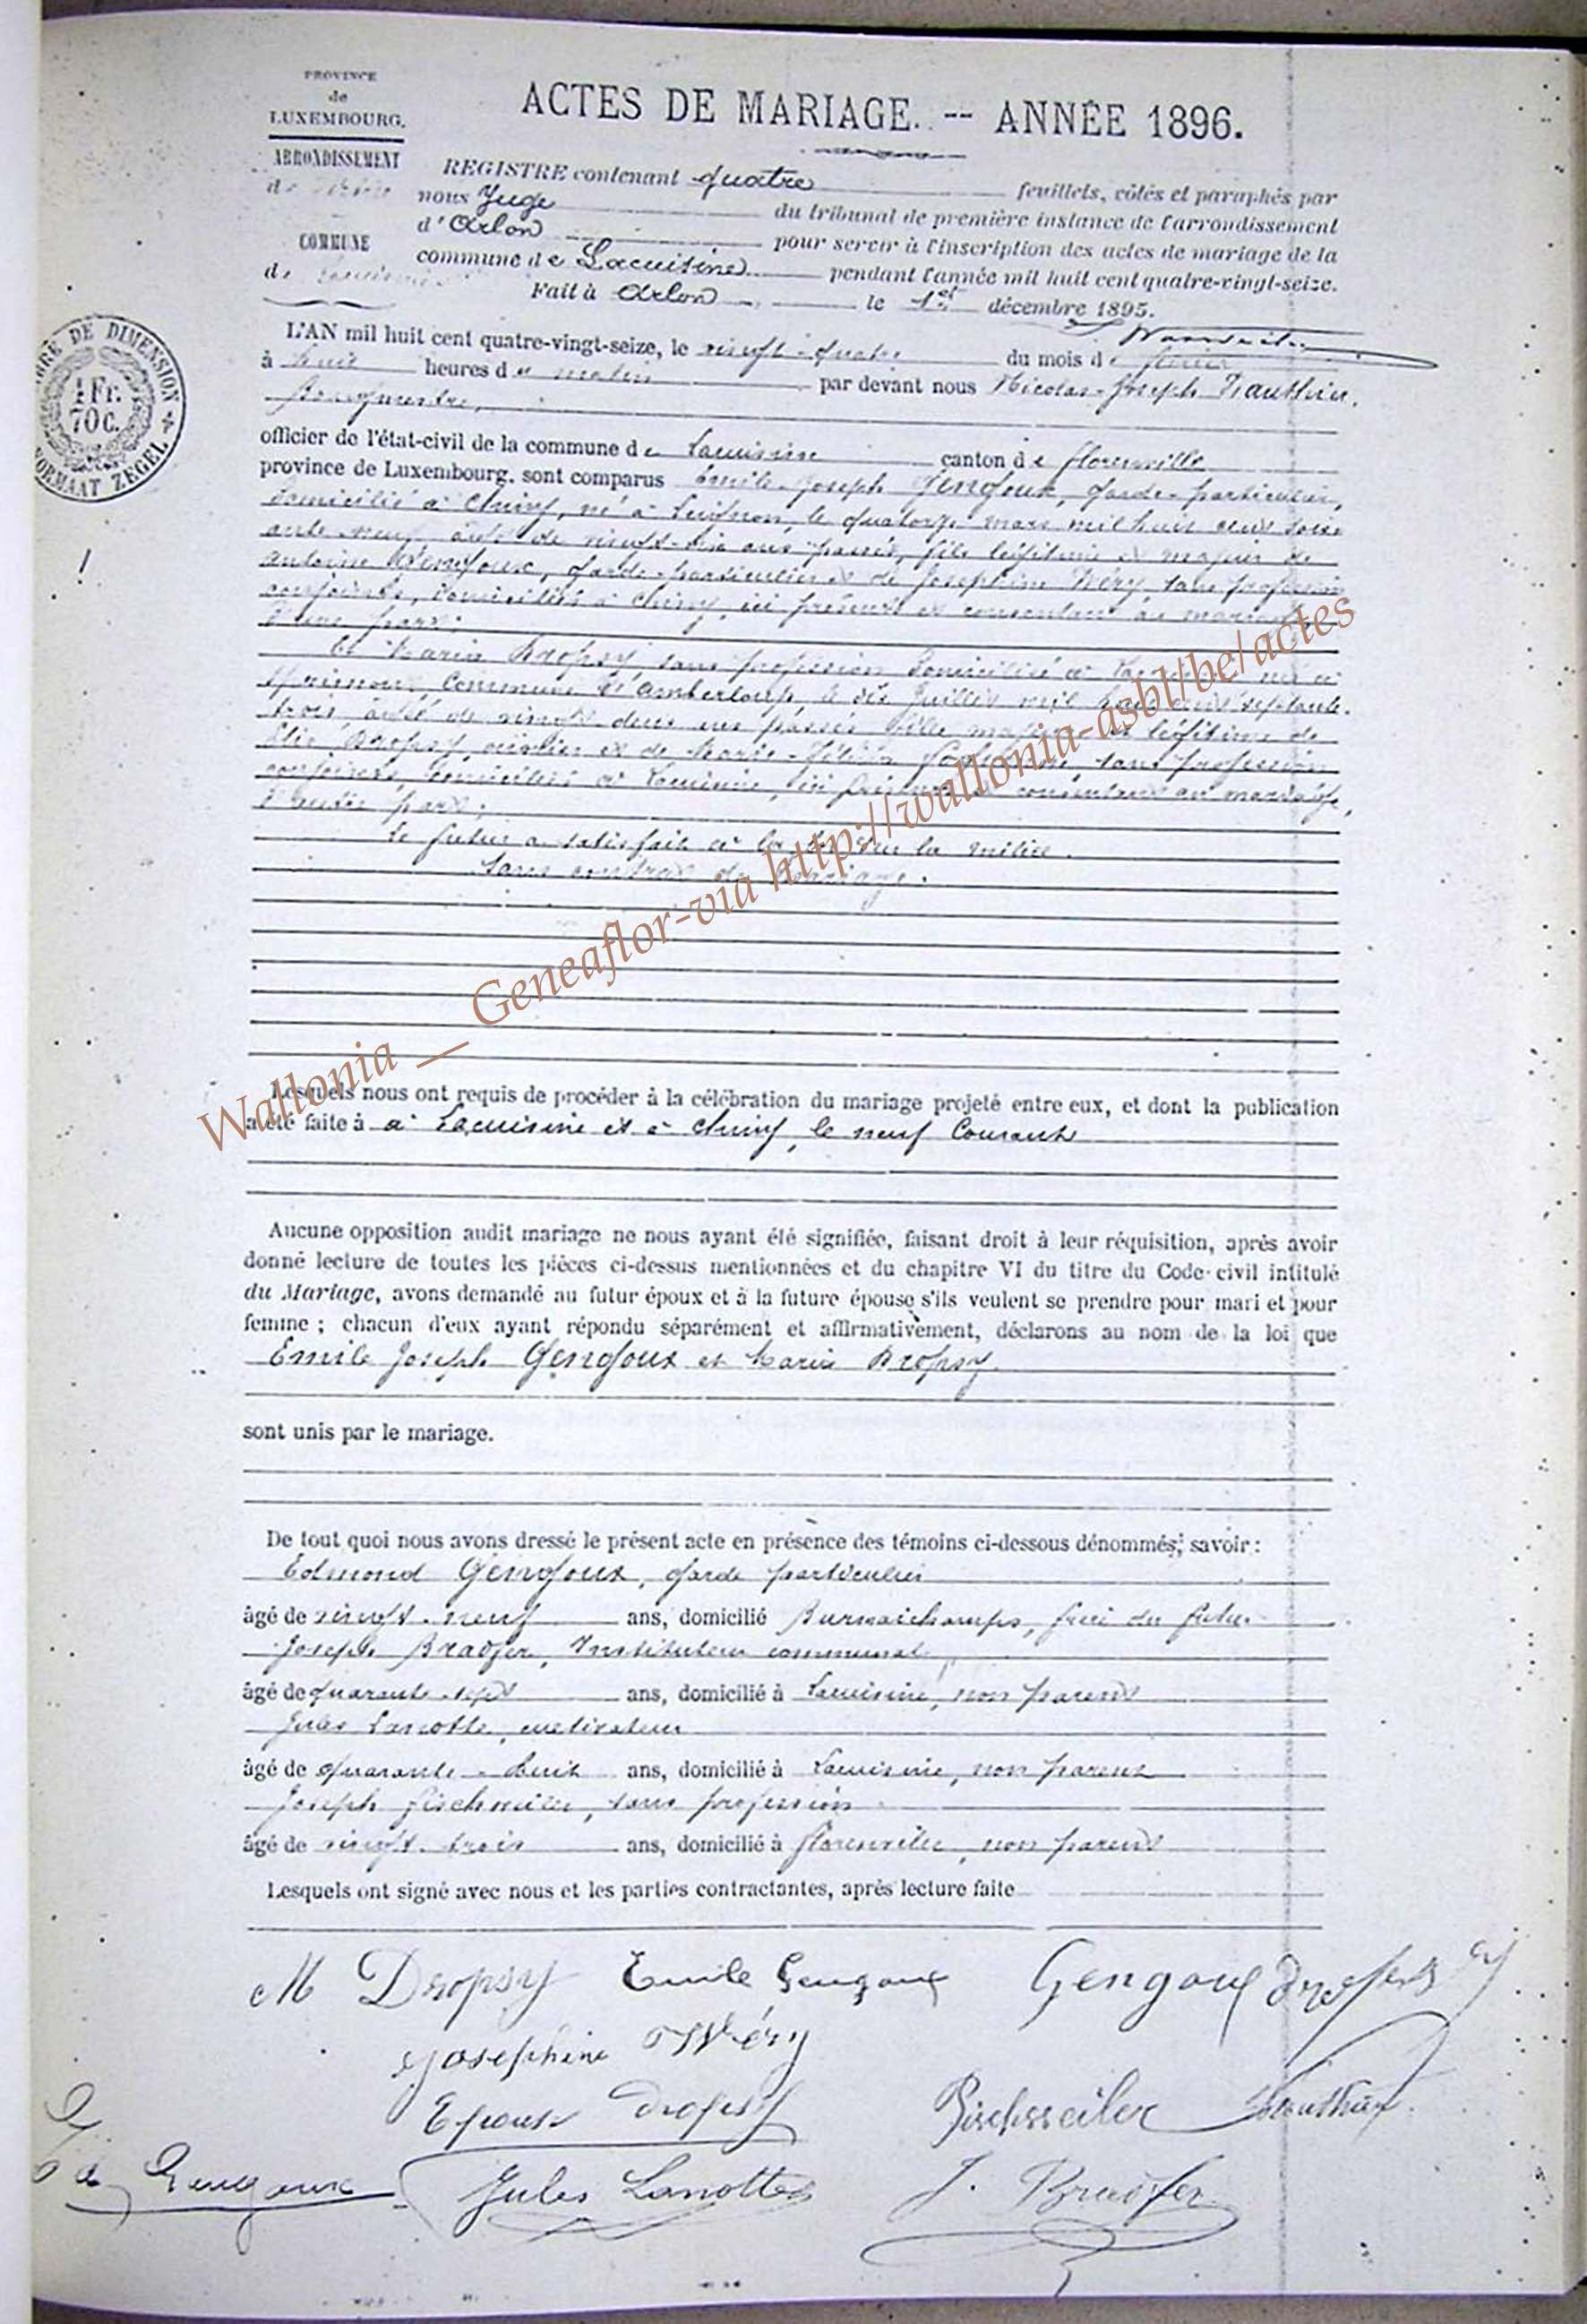 PROVINCE
de
LUXEMBOURG.
ARRONDISSEMENT
de
COMMUNE
de
ACTES DE MARIAGE. -- ANNÉE 1896.
REGISTRE contenant quatre feuillets, côtés et paraphés par
nous Juge du tribunal de première instance de l'arrondissement
d'Arlon pour servir à l'inscription des actes de mariage de la
commune de Lacuisine pendant l'année mil huit cent quatre-vingt-seize.
Fait à Arlon le 1er décembre 1895.
TIMBRE DE DIMENSION
1 Fr.
70 c.
FORMAAT ZEGEL
L'AN mil huit cent quatre-vingt-seize, le vingt-quatre du mois de
à huit heures du matin par devant nous Nicolas-Joseph
Bourgmestre,
officier de l'état-civil de la commune de Lacuisine canton de Florenville
province de Luxembourg, sont comparus Emile-Joseph Gengoux, garde-particulier,
domicilié à Chiny, né à Leignon, le quatorze mars mil huit cent soix-
ante-neuf, âgé de vingt-six ans passés, fils légitime et majeur de
Antoine Gengoux, garde-particulier et de Joséphine Wéry, sans profession
conjoints, domiciliés à Chiny, ici présents et consentant au mariage,
d'une part;
Et Maria Dropsy, sans profession domiciliée à née à
commune d'Amberloup, le dix juillet mil huit cent septante-
trois, âgée de vingt-deux ans passés fille majeure et légitime de
Dropsy, et de Marie- sans profession
conjoints, domiciliés à Lacuisine, ici présents et consentant au mariage,
d'autre part;
Le futur a satisfait à la loi sur la milice.
Sans contrat de mariage.
Wallonia __ Geneaflor-via http://wallonia-asbl/be/actes
Lesquels nous ont requis de procéder à la célébration du mariage projeté entre eux, et dont la publication
a été faite à à Lacuisine et à Chiny, le neuf Courant
Aucune opposition audit mariage ne nous ayant été signifiée, faisant droit à leur réquisition, après avoir
donné lecture de toutes les pièces ci-dessus mentionnées et du chapitre VI du titre du Code-civil intitulé
du Mariage, avons demandé au futur époux et à la future épouse s'ils veulent se prendre pour mari et pour
femme ; chacun d'eux ayant répondu séparément et affirmativement, déclarons au nom de la loi que
Emile Joseph Gengoux et Maria Dropsy
sont unis par le mariage.
De tout quoi nous avons dressé le présent acte en présence des témoins ci-dessous dénommés; savoir :
Edmond Gengoux, garde particulier
âgé de vingt-neuf ans, domicilié Burnaichamps, frère du futur
Joseph Bradfer, Instituteur communal
âgé de quarante-sept ans, domicilié à Lacuisine, non parent
Jules Lanotte, cultivateur
âgé de quarante-huit ans, domicilié à Lacuisine, non parent
Joseph sans profession
âgé de vingt-trois ans, domicilié à Florenville, non parent
Lesquels ont signé avec nous et les parties contractantes, après lecture faite
M Dropsy Emile Gengoux Gengoux
Joséphine Wéry
Epouse Dropsy Pischsseiler
Ed Gengoux Jules Lanotte J. Bradfer